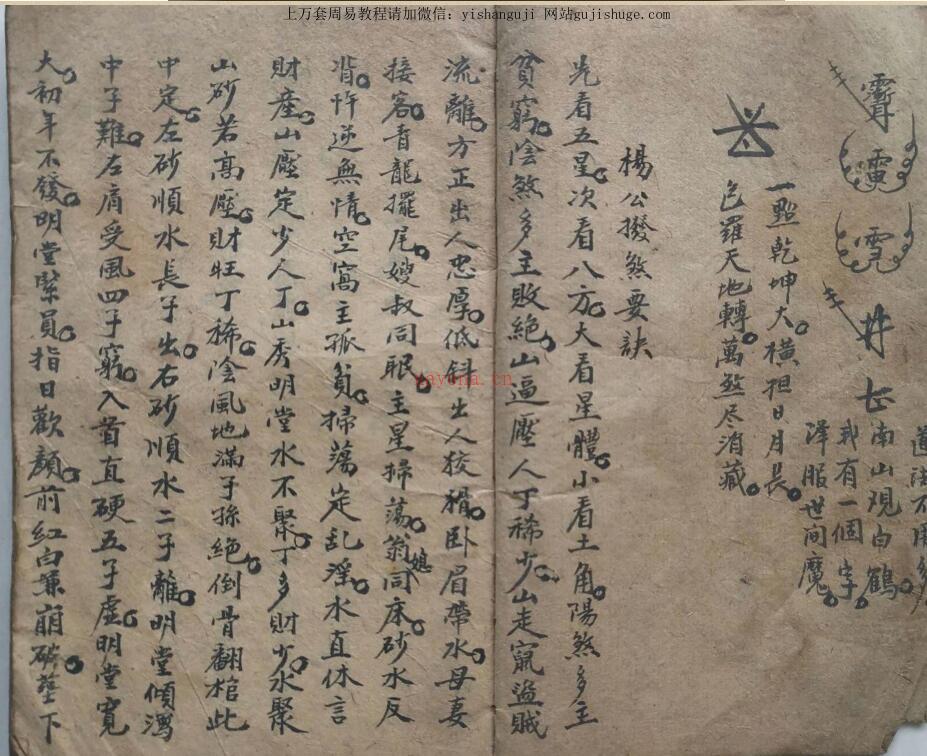 上万套周易教程请加微信：yishanguji 网站gujishuge.com
道法不用多
南山观白鶴
我有一個字
澤服世间魔
一點乾坤大橫担日月長
包羅天地轉萬煞尽消藏
楊公撥煞要訣
先看五星次看八方大看星體小看土角陽煞多主
貧窮陰煞多主敗絕山逼壓人丁稀少山走竄盜賊
流離方正出人忠厚低斜出人狡猾卧眉帶水母妻
接客青龍擺尾嫂叔同眠主星掃蕩翁媳同床砂水反
背忤逆無情空窩主孤貧掃蕩定乱淫水直休言
財產山壓定少人丁山秀明堂水不聚丁多財少水聚
山砂若高壓財旺丁稀陰風地滿子孫絕倒骨翻棺此
中定左砂順水長子出右砂順水二子離明堂傾瀉
中子難左肩受風四子窮入首直硬五子虛明堂寬
大初年不發明堂緊員指日歡顏前紅白兼崩破塟下
sayona.cn